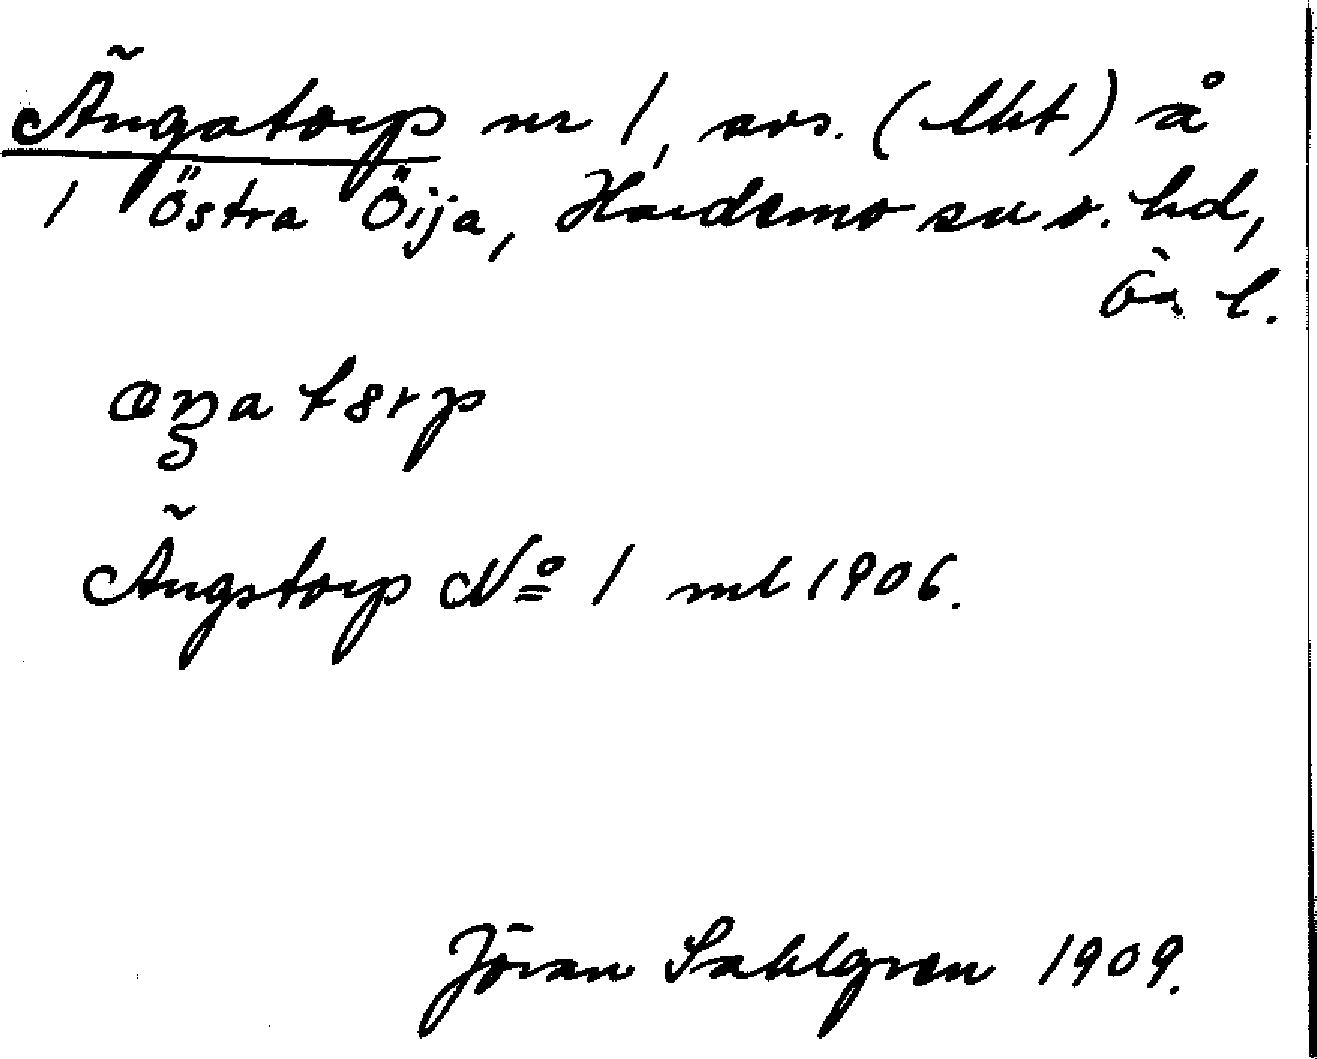 Ängatorp nr 1, avs. (lht) å
1 Östra Öija, Hardemo sn o. hd,
Ör l.
æŋatorp
Ängstorp No 1 ml 1906.
Jöran Sahlgren 1909.